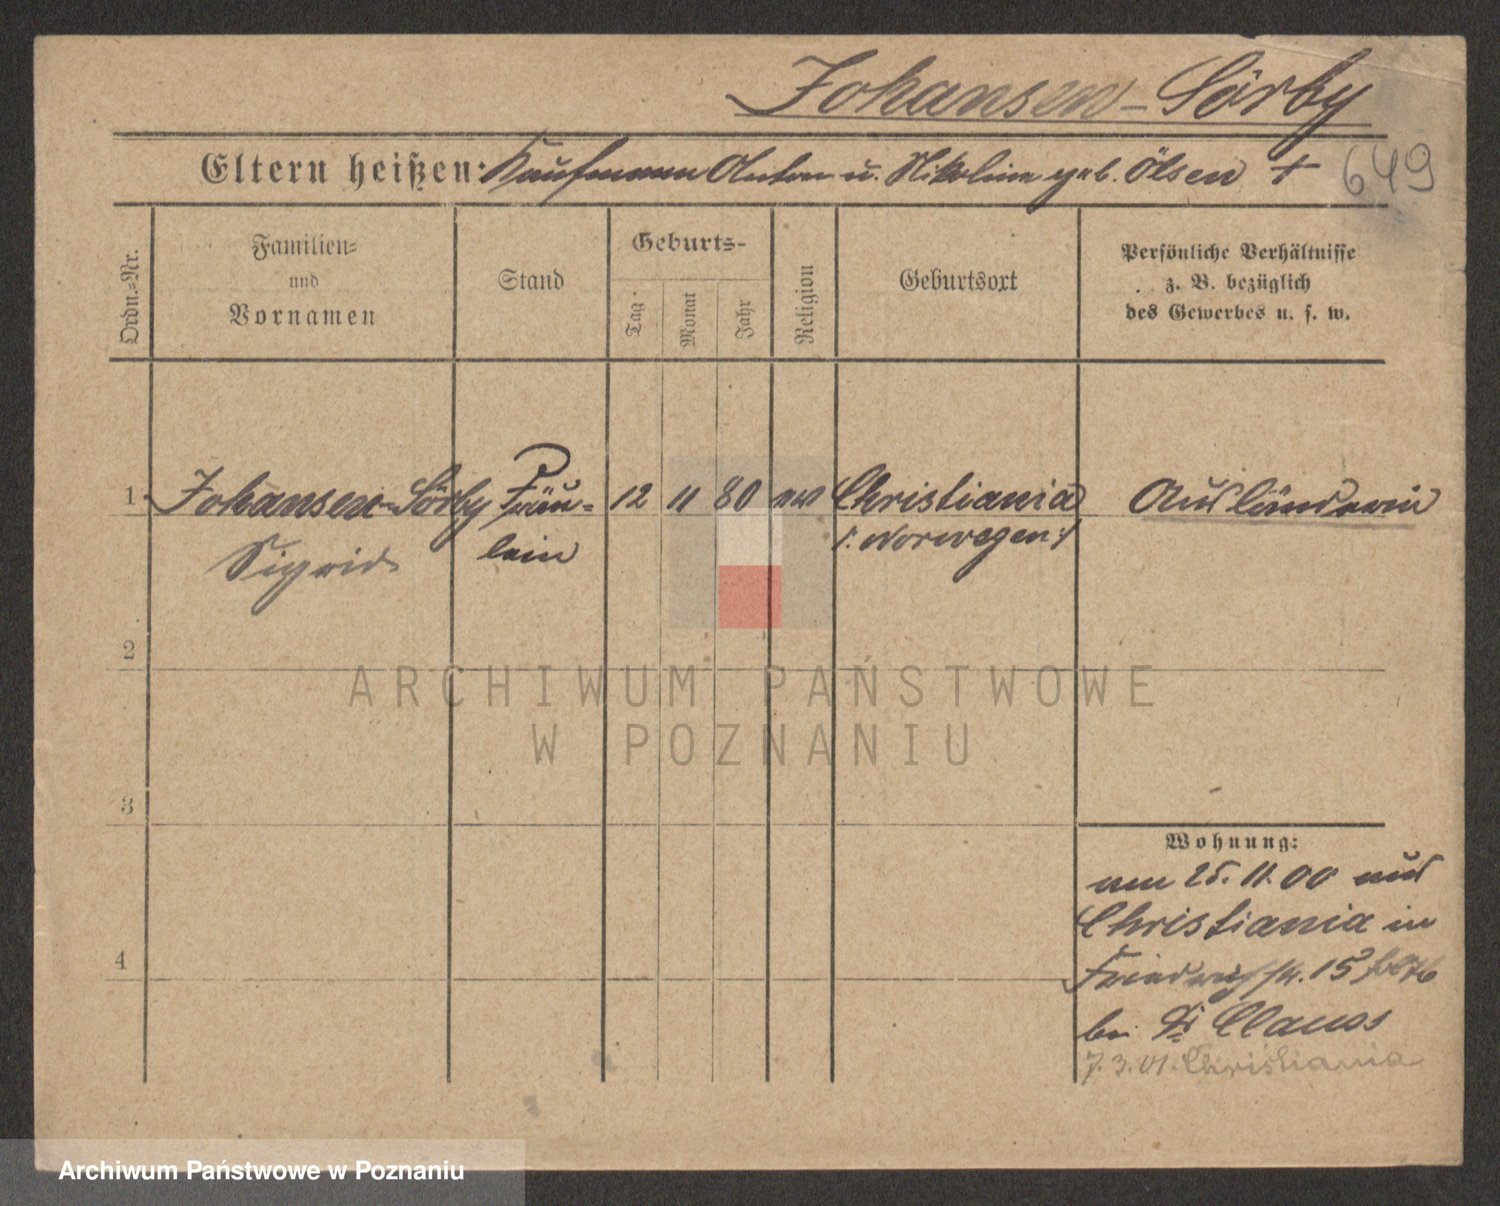 Johansen-Sörby
Eltern heißen: Kaufmann Anton u. Nikoline geb. Ölsen +
649
Ordn.-Nr.
Familien-
und
Vornamen
Stand
Geburts-
Tag
Monat
Jahr
Religion
Geburtsort
Persönliche Verhältnisse
z. B. bezüglich
des Gewerbes u. s. w.
1 Johansen-Sörby Fräu- 12 11 80 Christiania Ausländerin
Sigrid lein /: Norwegen :/
2
ARCHIWUM PAŃSTWOWE
W POZNANIU
3
Wohnung:
am 25. 11. 00 aus
Christiania in
4
15
bei Clauss
7.3.01. Christiania
Archiwum Państwowe w Poznaniu